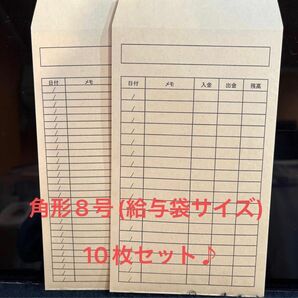 日付 メモ
日付 メモ 入金 出金 残高
角形8号(給与袋サイズ)
10枚セット♪